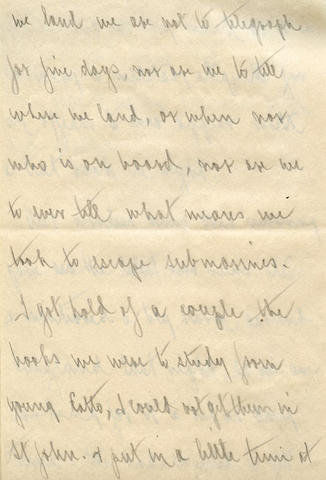 we land we are not to telegraph
for five days, nor are we to tell
where we land, or when nor
who is on board, nor are we
to ever tell what means we
took to escape submarines.
I got hold of a couple the
books we were to study from
young Catto, I could not get them in
St John. & put in a little time at